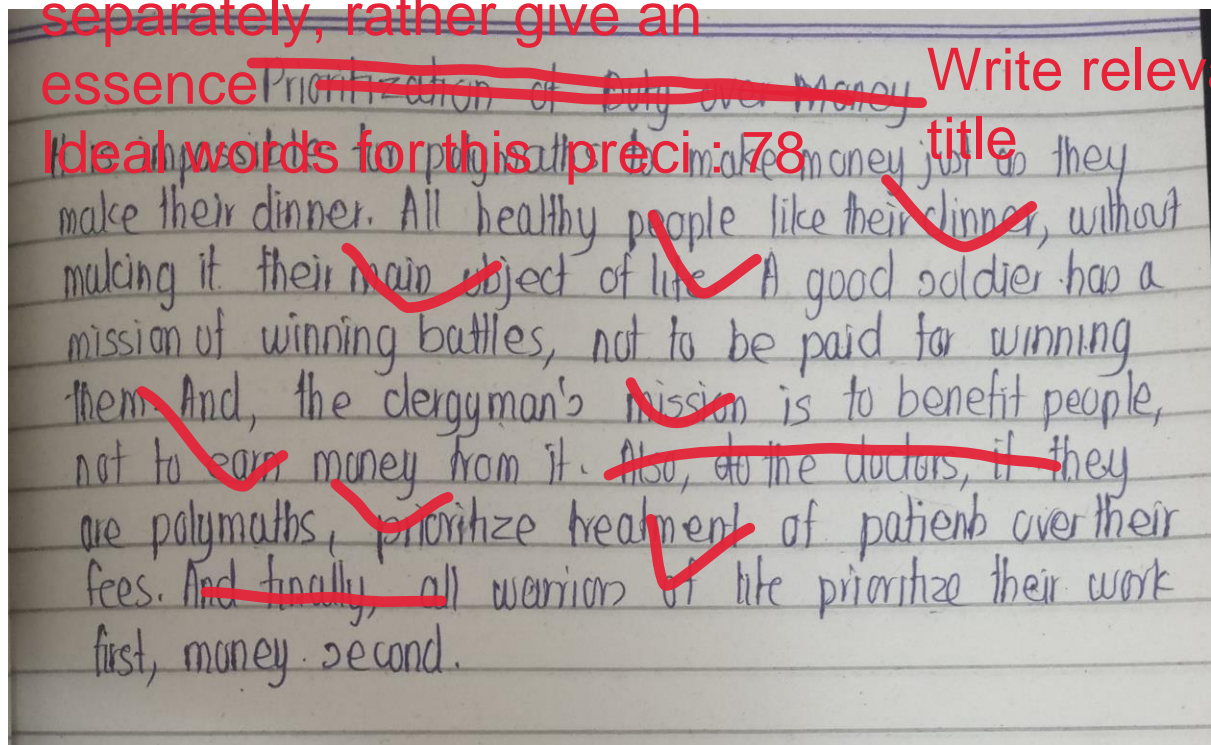 separately, rather give an
essence Prioritization of Duty over Money Write releva
Ideal words for this preci : 78 title
It is impossible for polymaths to make money just as they
make their dinner. All healthy people like their dinner, without
making it their main object of life. A good soldier has a
mission of winning battles, not to be paid for winning
them. And, the clergyman's mission is to benefit people,
not to earn money from it. Also, do the doctors, if they
are polymaths, prioritize treatment of patients over their
fees. And finally, all warriors of life prioritize their work
first, money second.